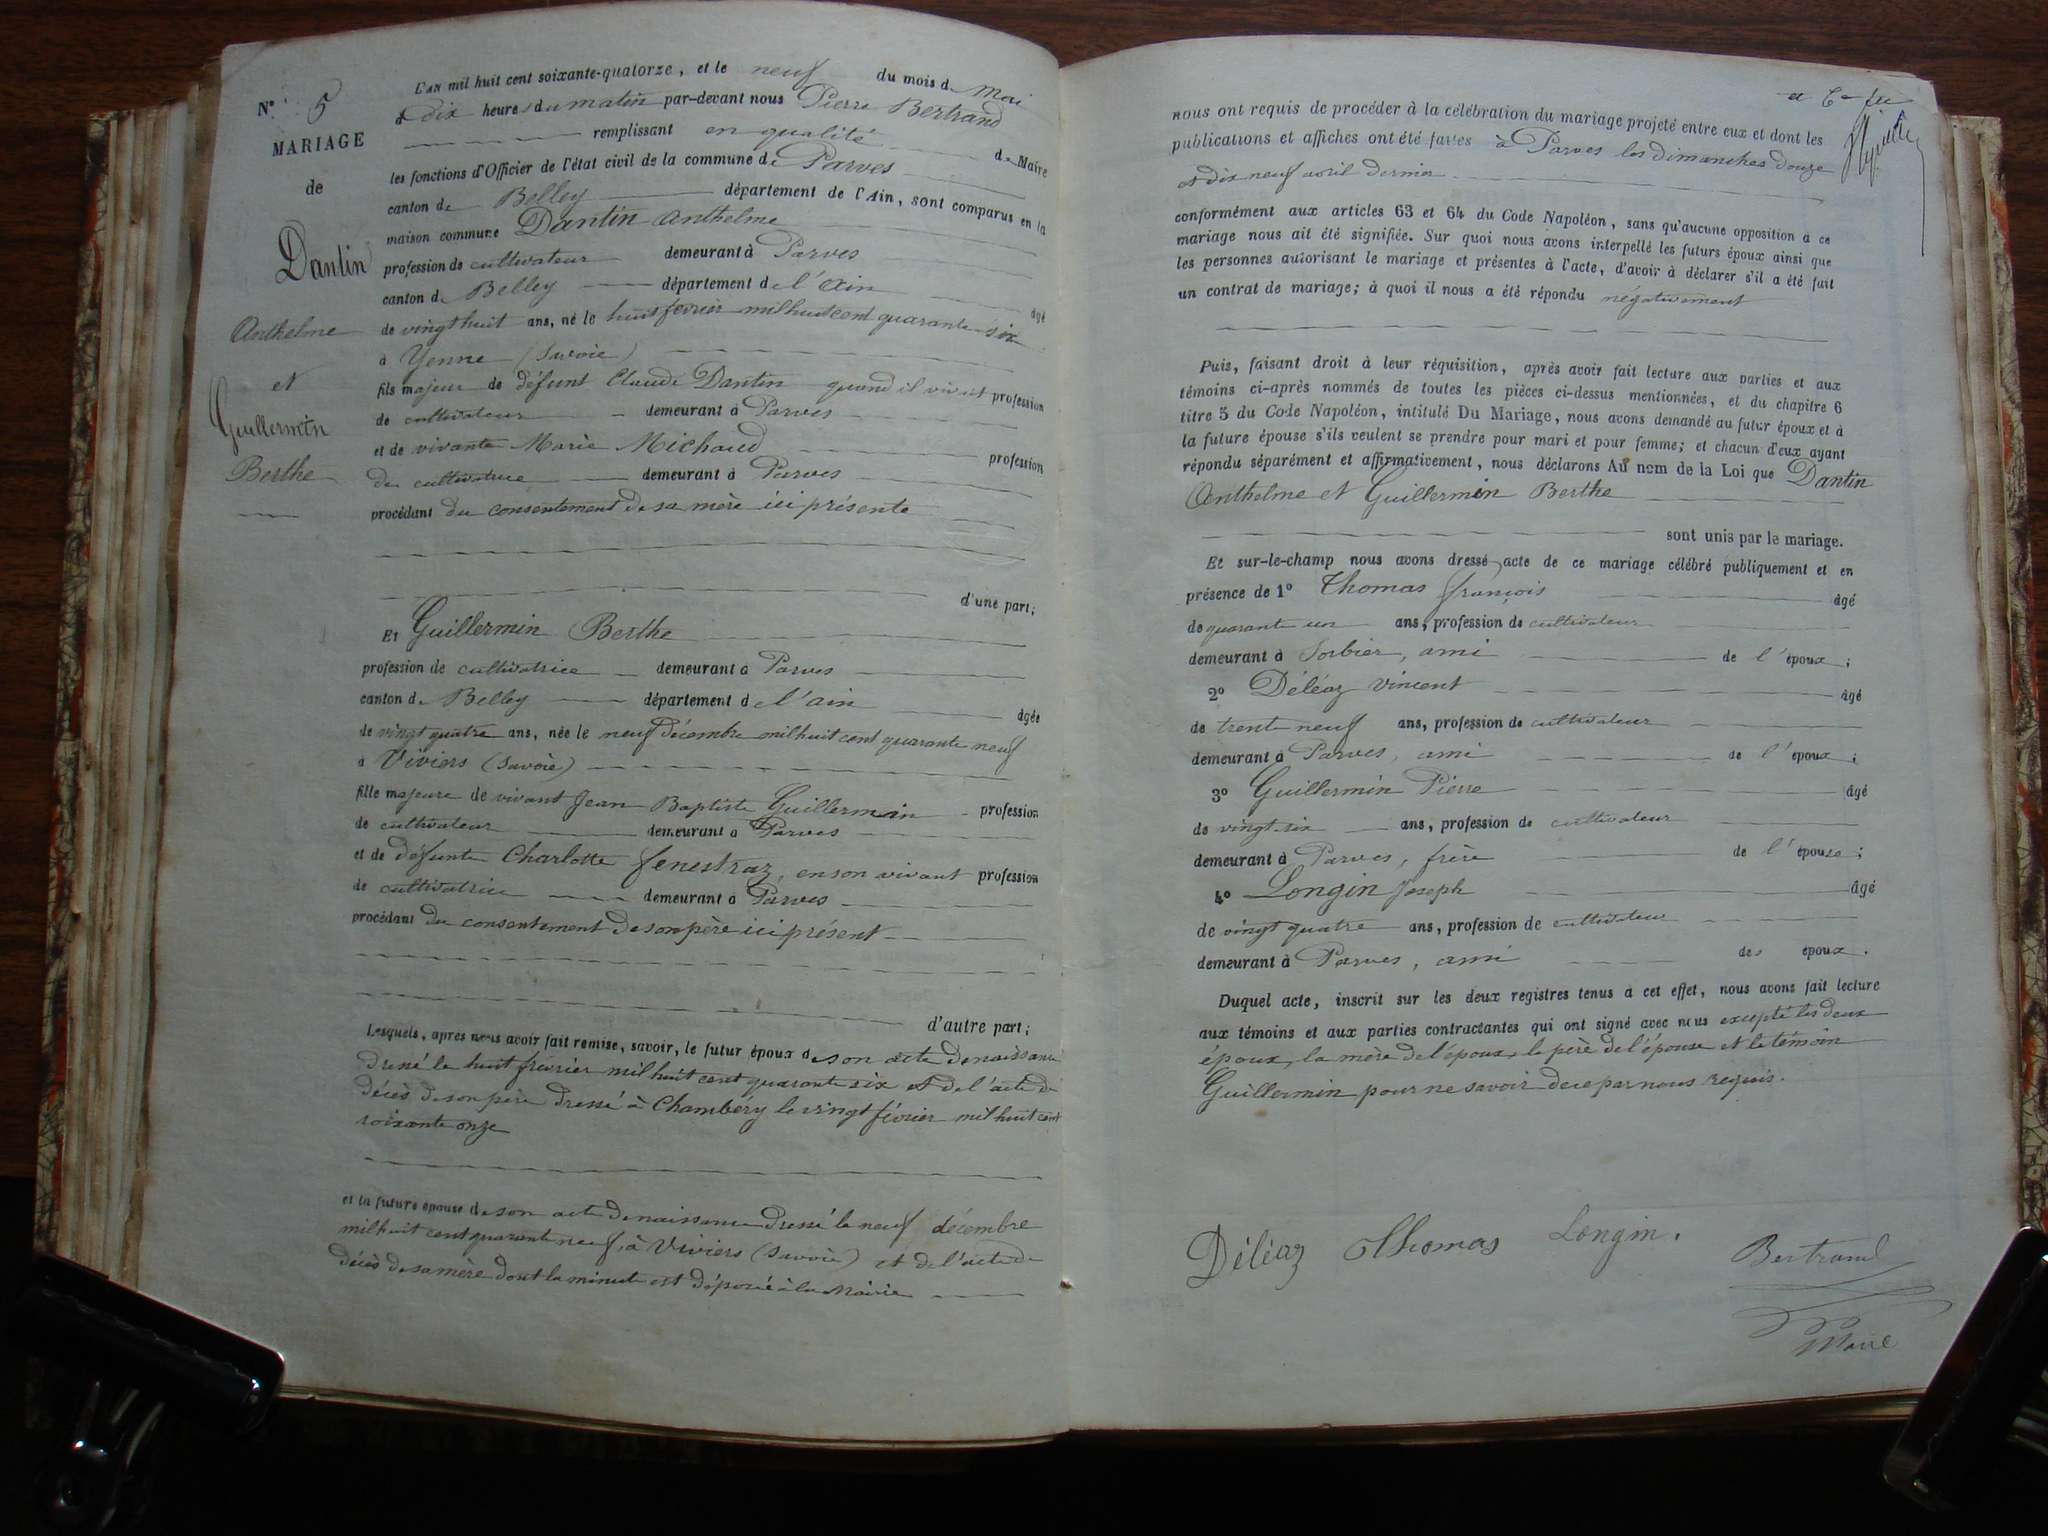 N° 5
MARIAGE
de
Dantin
Anthelme
et
Guillermin
Berthe
L'an mil huit cent soixante-quatorze, et le neuf du mois de Mai
à dix heures du matin par-devant nous Pierre Bertrand
remplissant en qualité de Maire
les fonctions d'Officier de l'état civil de la commune de Parves
canton de Belley département de l'Ain, sont comparus en la
maison commune Dantin Anthelme
profession de cultivateur demeurant à Parves
canton de Belley département de l'Ain âgé
de vingt huit ans, né le huit fevrier mil huit cent quarante six
à Yenne (Savoie)
fils majeur de défunt Claude Dantin quand il vivait profession
de cultivateur demeurant à Parves
et de vivante Marie Michaud profession
de cultivatrice demeurant à Parves
procédant du consentement de sa mère ici présente
d'une part;
Et Guillermin Berthe
profession de cultivatrice demeurant à Parves
canton de Belley département de l'ain âgée
de vingt quatre ans, née le neuf décembre mil huit cent quarante neuf
à Viviers (Savoie)
fille majeure de vivant Jean Baptiste Guillermin profession
de cultivateur demeurant à Parves
et de défunte Charlotte fenestraz, en son vivant profession
de cultivatrice demeurant à Parves
procédant du consentement de son père ici présent
d'autre part;
Lesquels, après nous avoir fait remise, savoir, le futur époux de son acte de naissance
dressé le huit février mil huit cent quarante six et de l'acte de
décès de son père dressé à Chambéry le vingt février mil huit cent
soixante onze
et la future épouse de son acte de naissance dressé le neuf décembre
mil huit cent quarante neuf, à Viviers (Savoie) et de l'acte de
décès de sa mère dont la minute est déposée à la Mairie
nous ont requis de procéder à la célébration du mariage projeté entre eux et dont les
publications et affiches ont été faites à Parves les dimanches douze
et dix neuf avril dernier
conformément aux articles 63 et 64 du Code Napoléon, sans qu'aucune opposition à ce
mariage nous ait été signifiée. Sur quoi nous avons interpellé les futurs époux ainsi que
les personnes autorisant le mariage et présentes à l'acte, d'avoir à déclarer s'il a été fait
un contrat de mariage; à quoi il nous a été répondu négativement
Puis, faisant droit à leur réquisition, après avoir fait lecture aux parties et aux
témoins ci-après nommés de toutes les pièces ci-dessus mentionnées, et du chapitre 6
titre 5 du Code Napoléon, intitulé Du Mariage, nous avons demandé au futur époux et à
la future épouse s'ils veulent se prendre pour mari et pour femme; et chacun d'eux ayant
répondu séparément et affirmativement, nous déclarons Au nom de la Loi que Dantin
Anthelme et Guillermin Berthe
sont unis par le mariage.
Et sur-le-champ nous avons dressé acte de ce mariage célébré publiquement et en
présence de 1° Thomas françois âgé
de quarante un ans, profession de cultivateur
demeurant à Sorbier, ami de l'époux;
2° Déléaz vincent âgé
de trente neuf ans, profession de cultivateur
demeurant à Parves, ami de l'époux;
3° Guillermin Pierre âgé
de vingt-six ans, profession de cultivateur
demeurant à Parves, frère de l'épouse;
4° Longin Joseph âgé
de vingt quatre ans, profession de cultivateur
demeurant à Parves, ami des époux.
Duquel acte, inscrit sur les deux registres tenus à cet effet, nous avons fait lecture
aux témoins et aux parties contractantes qui ont signé avec nous excepté les deux
époux, la mère de l'époux, le père de l'épouse et le témoin
Guillermin pour ne savoir de ce par nous requis.
Déléaz Thomas Longin.
Bertrand
Maire